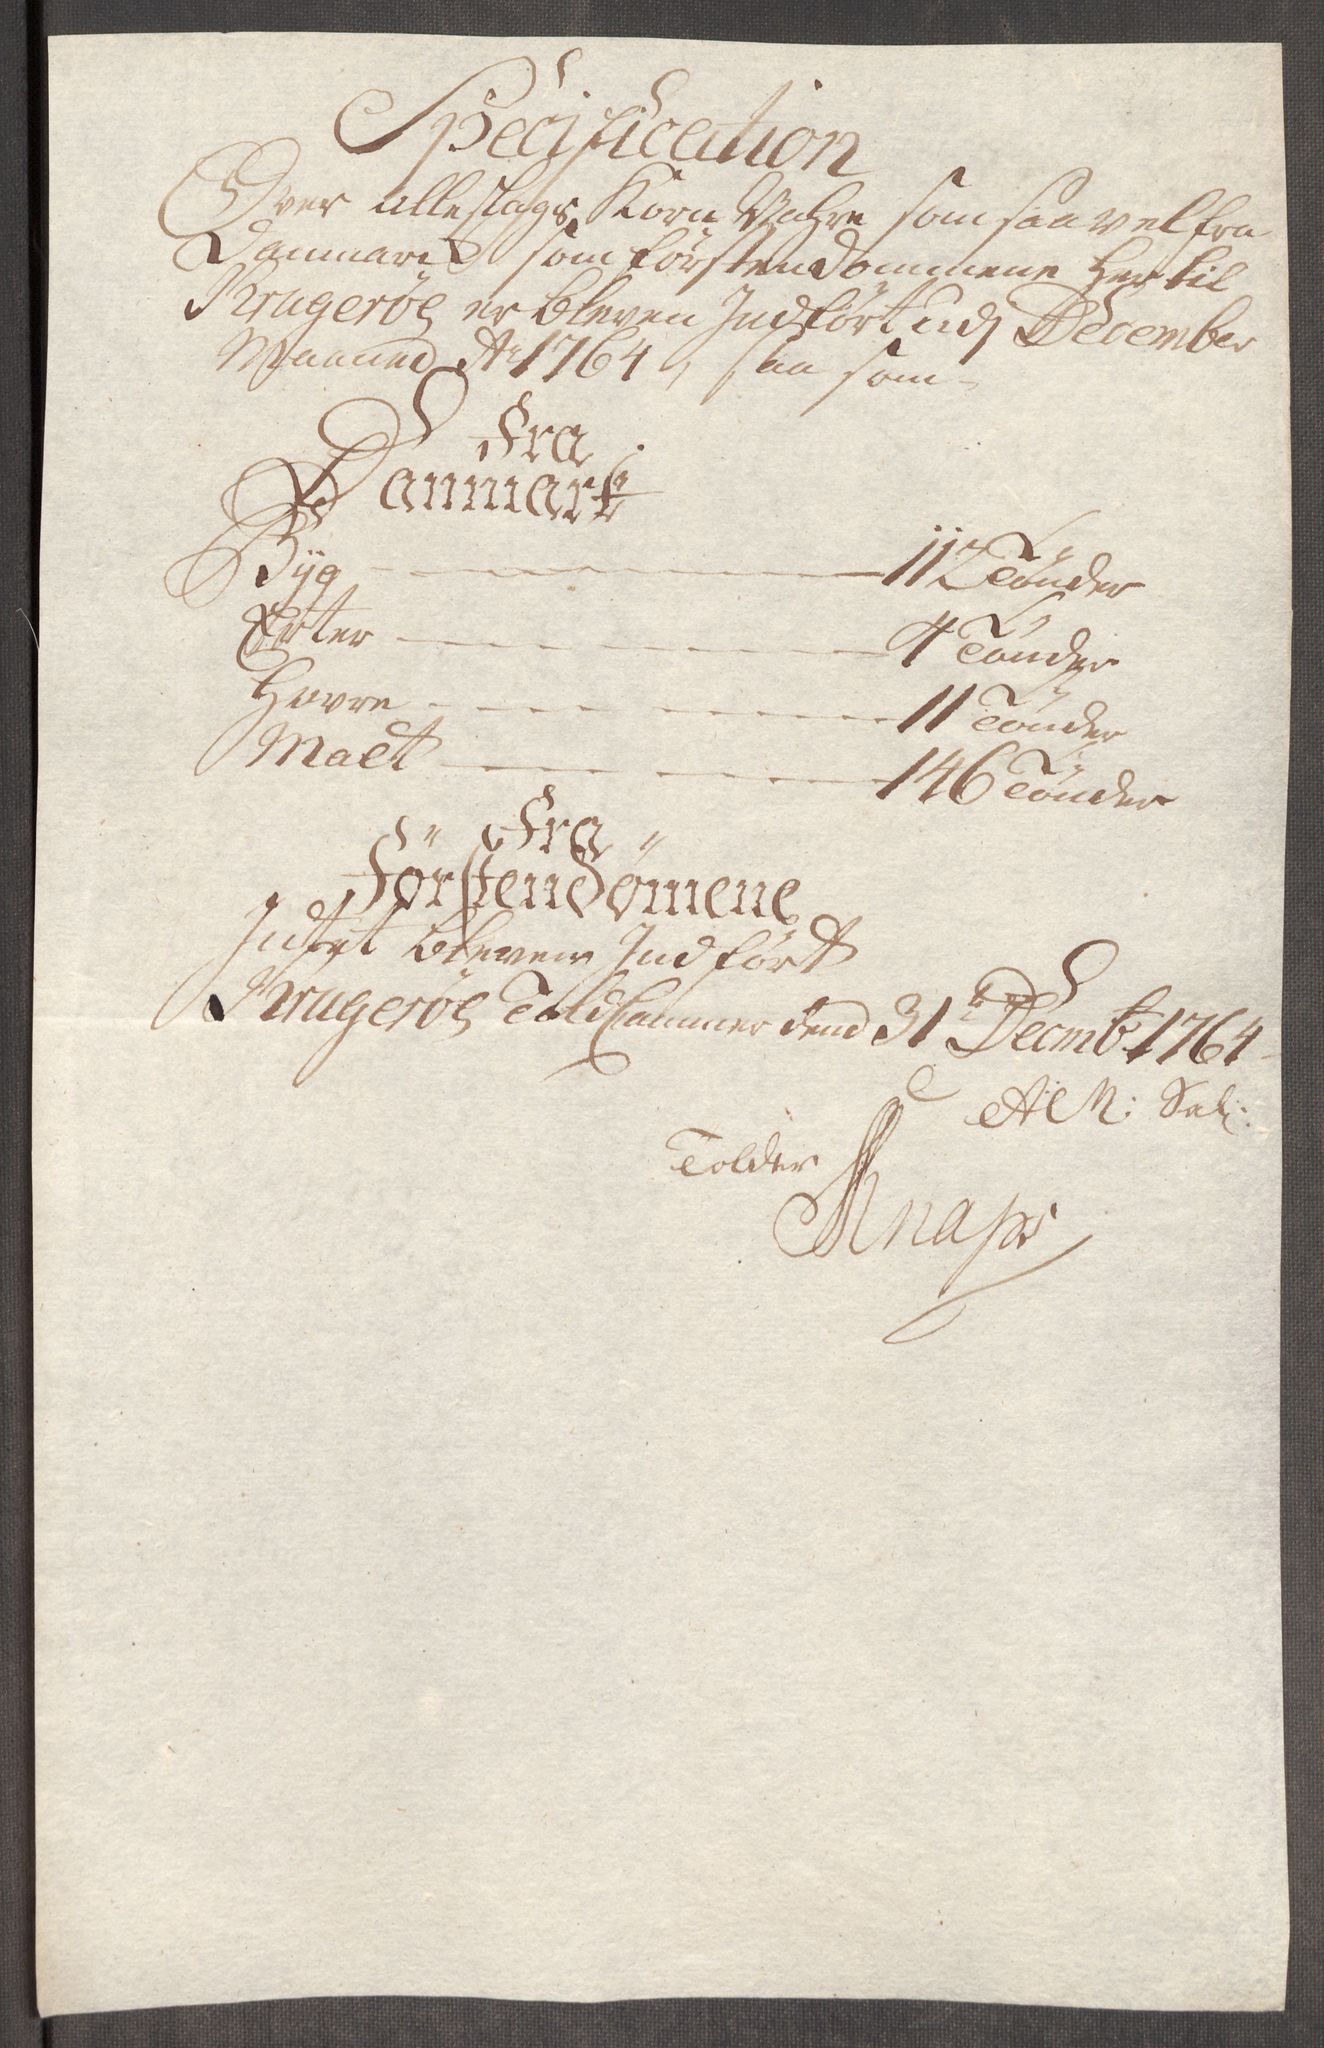 Specification
Over alleslags Korn Vahre som saavel fra
Danmarck som Førstendommene her til
Kragerøe er bleven Indført udj December
Maaned Ao 1764, saa som
Fra
Danmark
Byg 112 Tønder
Erter 4 Tønder
Havre 11 Tønder
Malt 146 Tønder
Fra
Førstendømene
Intet bleven Indført
Kragerøe Told Cammer dend 31 Decmbr 1764
Tolder
Knaps